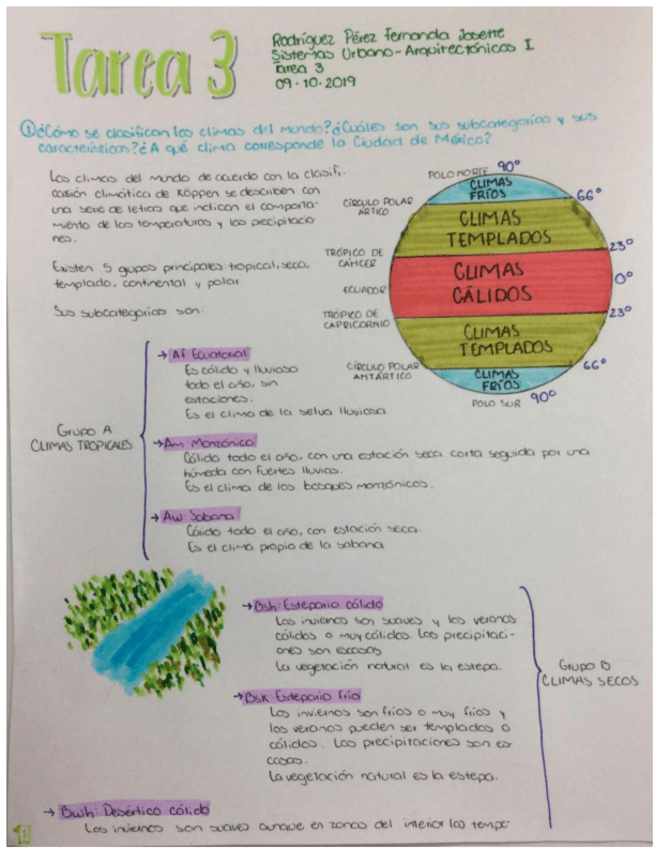 Tarea 3
Rodríguez Pérez Fernanda Josette
Sistemas Urbano-Arquitectónicos I
Tarea 3
09·10·2019
① ¿Cómo se clasifican los climas del mundo? ¿Cuáles son sus subcategorías y sus
características? ¿A qué clima corresponde la Ciudad de México?
Los climas del mundo de acuerdo con la clasifi-
cación climática de Köppen se describen con
una serie de letras que indican el comporta-
miento de las temperaturas y las precipitacio
nes.
Existen 5 grupos principales tropical, seco,
templado, continental y polar
Sus subcategorías son:
POLO NORTE 90°
CLIMAS
FRÍOS
66°
CÍRCULO POLAR
ÁRTICO
CLIMAS
TEMPLADOS
23°
TRÓPICO DE
CÁNCER
CLIMAS
CÁLIDOS
0°
ECUADOR
23°
TRÓPICO DE
CAPRICORNIO
CLIMAS
TEMPLADOS
66°
CÍRCULO POLAR
ANTÁRTICO
CLIMAS
FRÍOS
POLO SUR 90°
GRUPO A
CLIMAS TROPICALES
→ Af Ecuatorial
Es cálido y lluvioso
todo el año, sin
estaciones.
Es el clima de la selva lluviosa
→ Am: Monzónico
Cálido todo el año, con una estación seca corta seguida por una
húmeda con fuertes lluvias.
Es el clima de los bosques monzónicos.
→ Aw: Sabana
Cálido todo el año, con estación seca.
Es el clima propio de la sabana
→ Bsh: Estepario cálido
Los inviernos son suaves y los veranos
cálidos o muy cálidos. Las precipitaci-
ones son escasas
La vegetación natural es la estepa.
GRUPO B
CLIMAS SECOS
→ Bsk: Estepario frío
Los inviernos son fríos o muy fríos y
los veranos pueden ser templados o
cálidos. Las precipitaciones son es
casas.
La vegetación natural es la estepa.
→ Bwh: Desértico cálido
Los inviernos son suaves aunque en zonas del interior las tempe-
1